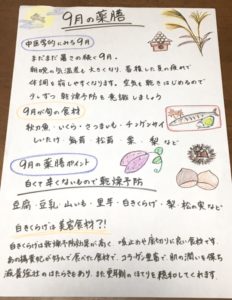 9月の薬膳
中医学的にみる9月
まだまだ暑さの続く9月。
朝晩の気温差も大きくなり、蓄積した夏の疲れで
体調を崩しやすくなります。空気も乾きはじめるので
少しずつ乾燥予防を意識しましょう
9月が旬の食材
秋刀魚・いくら・さつまいも・チンゲンサイ
しいたけ・無花果・松茸・栗・梨など
9月の薬膳ポイント
白くて辛くないもので乾燥予防
豆腐・豆乳・山いも・里芋・白きくらげ・梨・松の実など
白きくらげは美容食材?!
白きくらげは乾燥予防効果が高く、咳止めや肌荒れに良い食材です。
あの楊貴妃が好んで食べた食材で、コラーゲン豊富で肌の潤いを保ち
滋養強壮のはたらきもあり、また更年期のほてりを緩和してくれます。